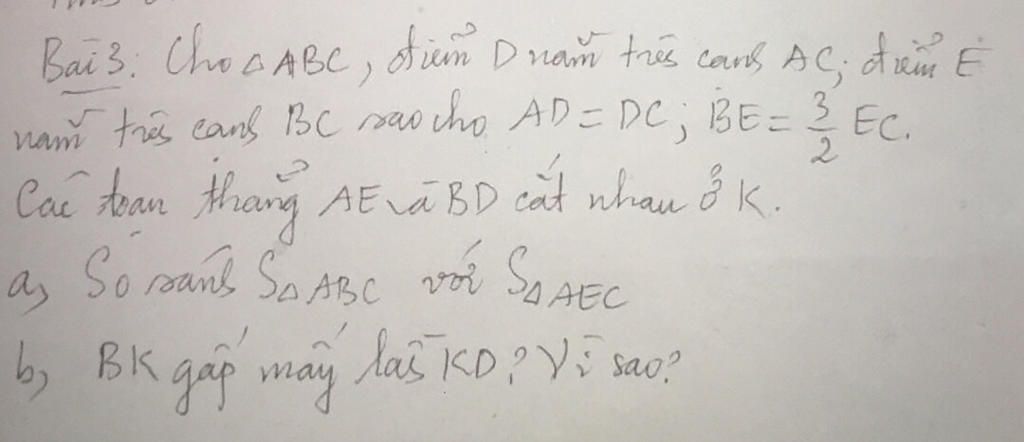 Bài 3: Cho △ABC, điểm D nằm trên cạnh AC; điểm E
nằm trên cạnh BC sao cho AD = DC; BE = 3/2 EC.
Các đoạn thẳng AE và BD cắt nhau ở K.
a, So sánh S△ABC với S△AEC
b, BK gấp mấy lần KD? Vì sao?